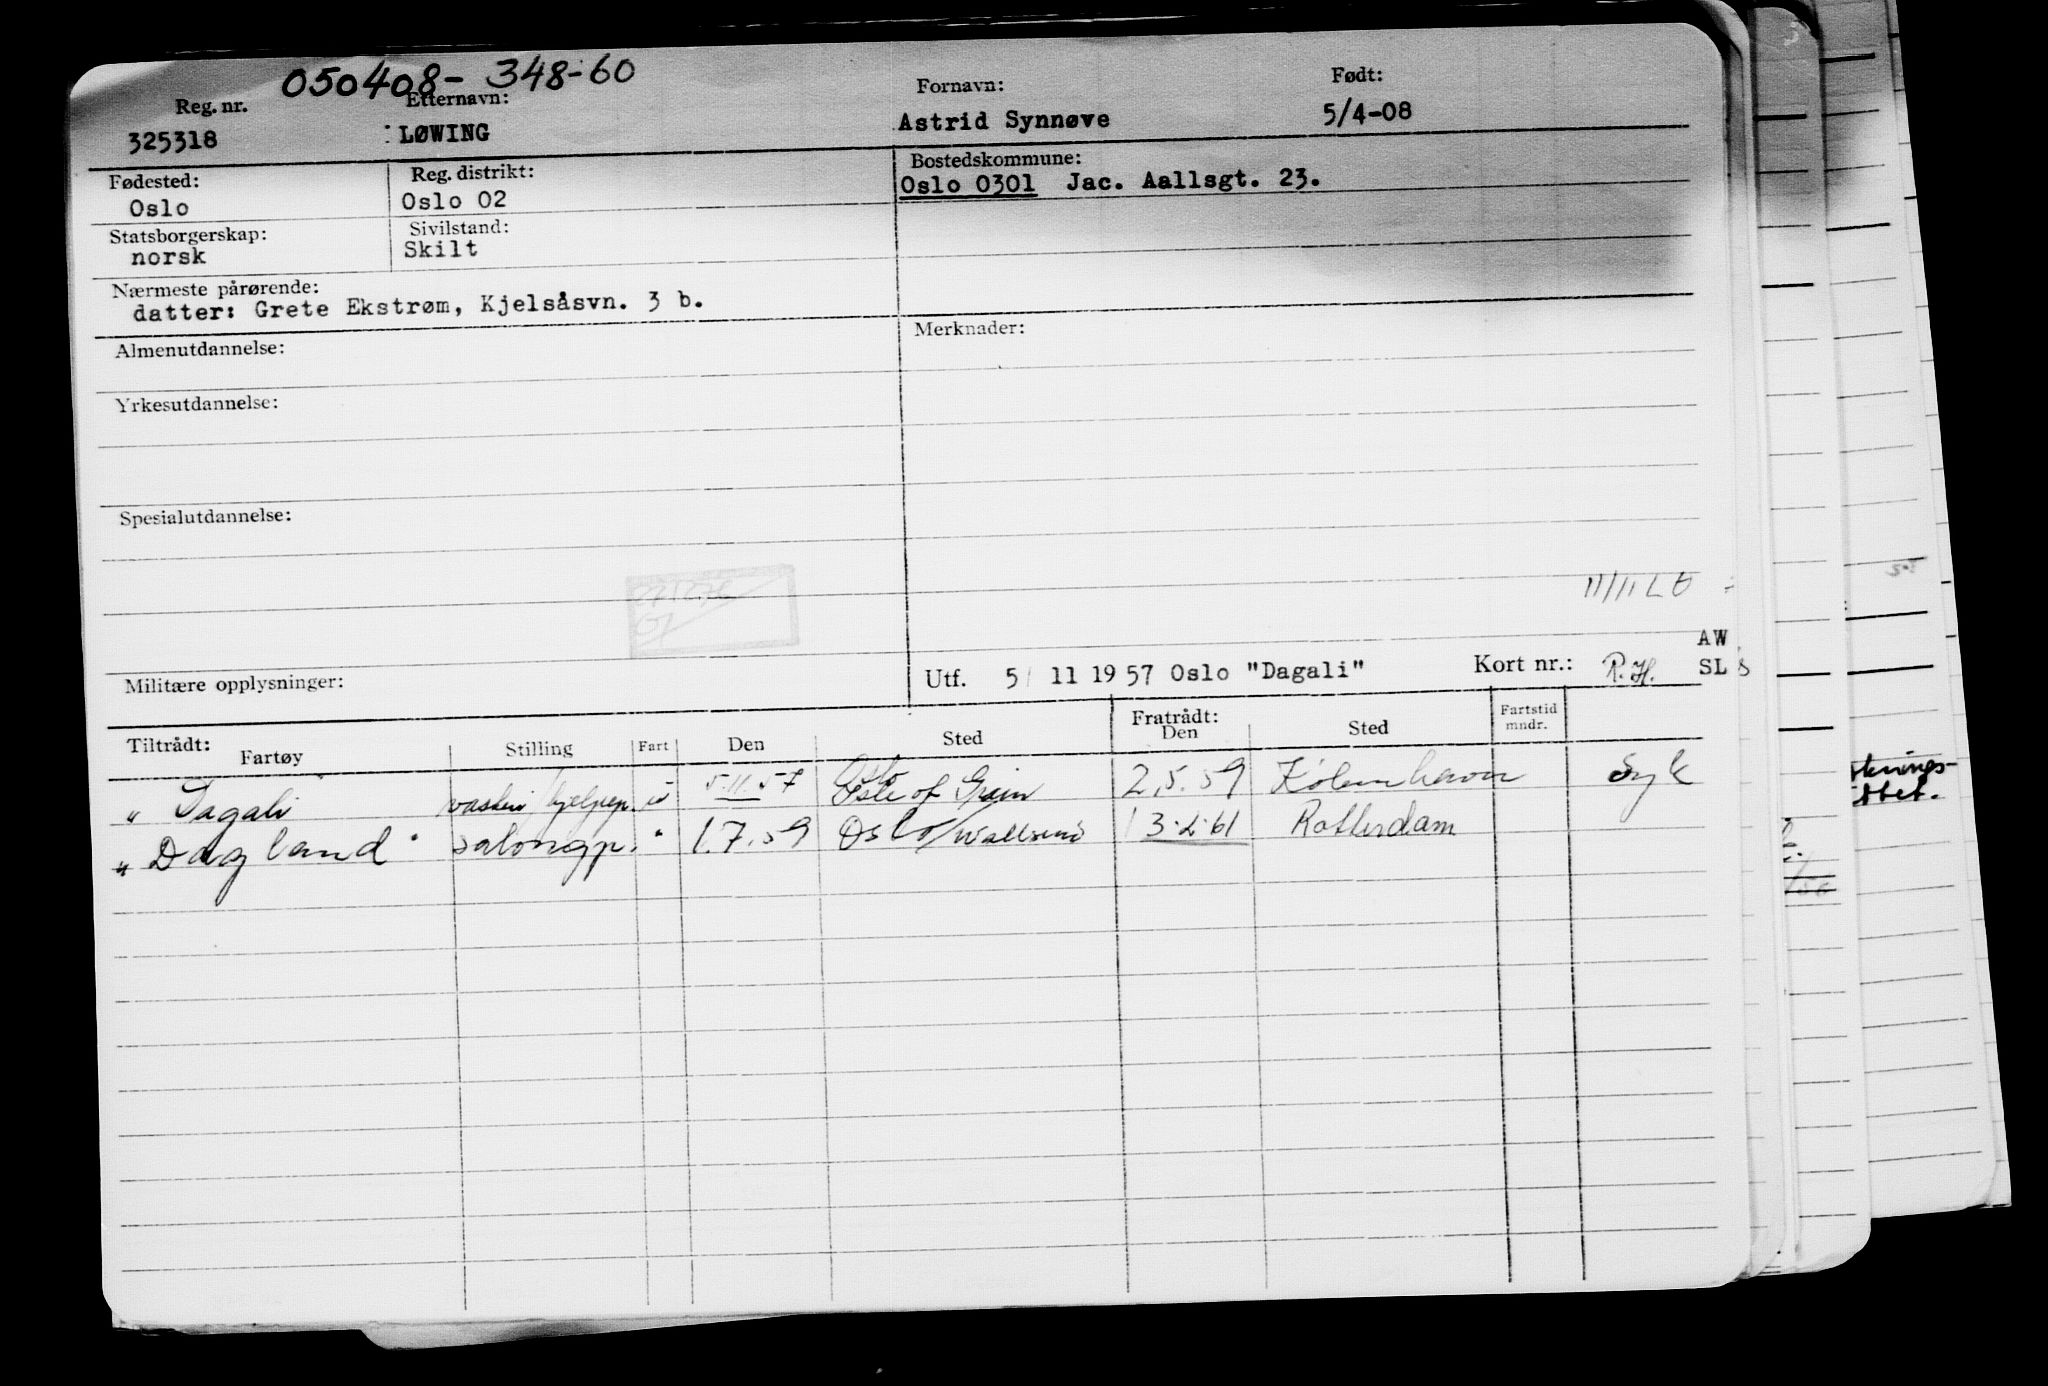 050408- 348-60
Reg. nr. Etternavn: Fornavn: Født:
325318 LØWING Astrid Synnøve 5/4-08
Fødested: Reg. distrikt: Bostedskommune:
Oslo Oslo 02 Oslo 0301 Jac. Aallsgt. 23.
Statsborgerskap: Sivilstand:
norsk Skilt
Nærmeste pårørende:
datter: Grete Ekstrøm, Kjelsåsvn. 3 b.
Merknader:
Almenutdannelse:
Yrkesutdannelse:
Spesialutdannelse:
11/11 L
AW
Militære opplysninger: Utf. 5/ 11 1957 Oslo "Dagali" Kort nr.: R.H. SL
Tiltrådt: Fartøy Stilling Fart Den Sted Fratrådt: Den Sted Fartstid mndr.
" Dagali vaskeri/hjelpep. u 5.11.57 Oslo
Isle of Grain 2.5.59 København Syk
" Dagland " salongp. " 1.7.59 Oslo/Wallsend 13.2.61 Rotterdam